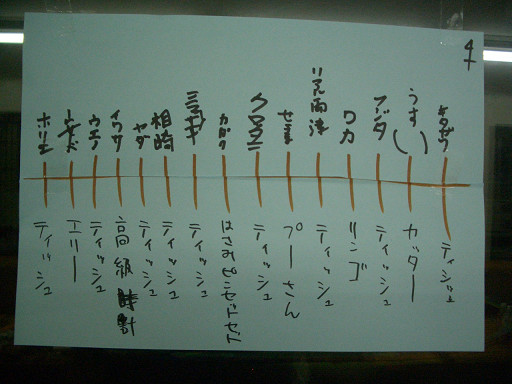 ティッシュ
うすい
カッター
フジタ
ティッシュ
ワカ
リンゴ
ティッシュ
プーさん
クマタニ
ティッシュ
はさみピンセットセット
ティッシュ
相崎
ティッシュ
ヤダ
ティッシュ
イワサ
高級時計
ウエノ
ティッシュ
エリー
ホリエ
ティッシュ